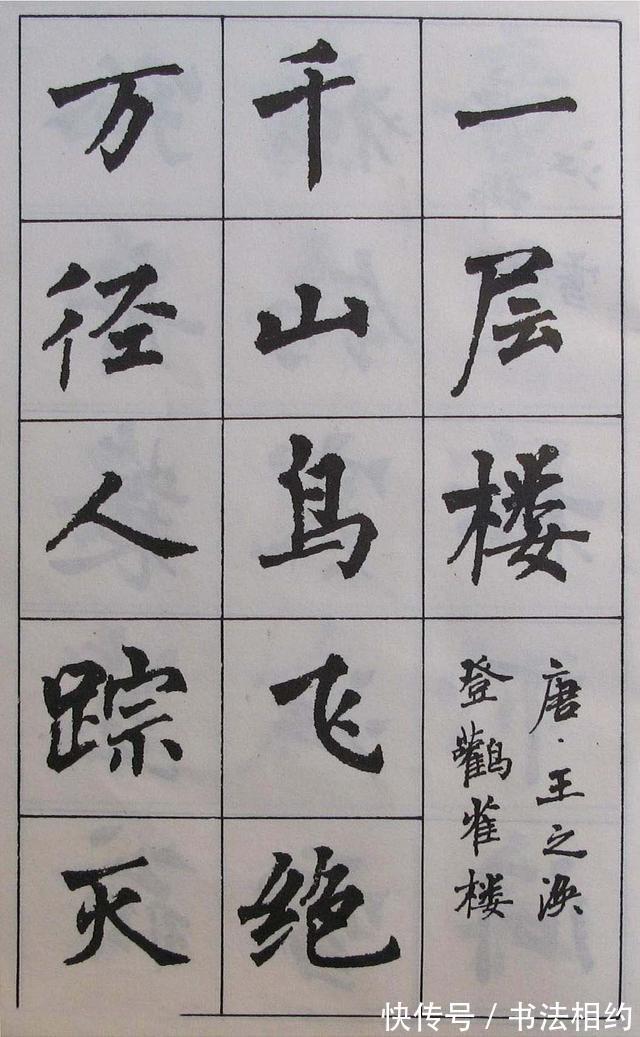 一层楼
唐·王之涣
登鸛雀楼
千山鸟飞绝
万径人踪灭
快传号 / 书法相约